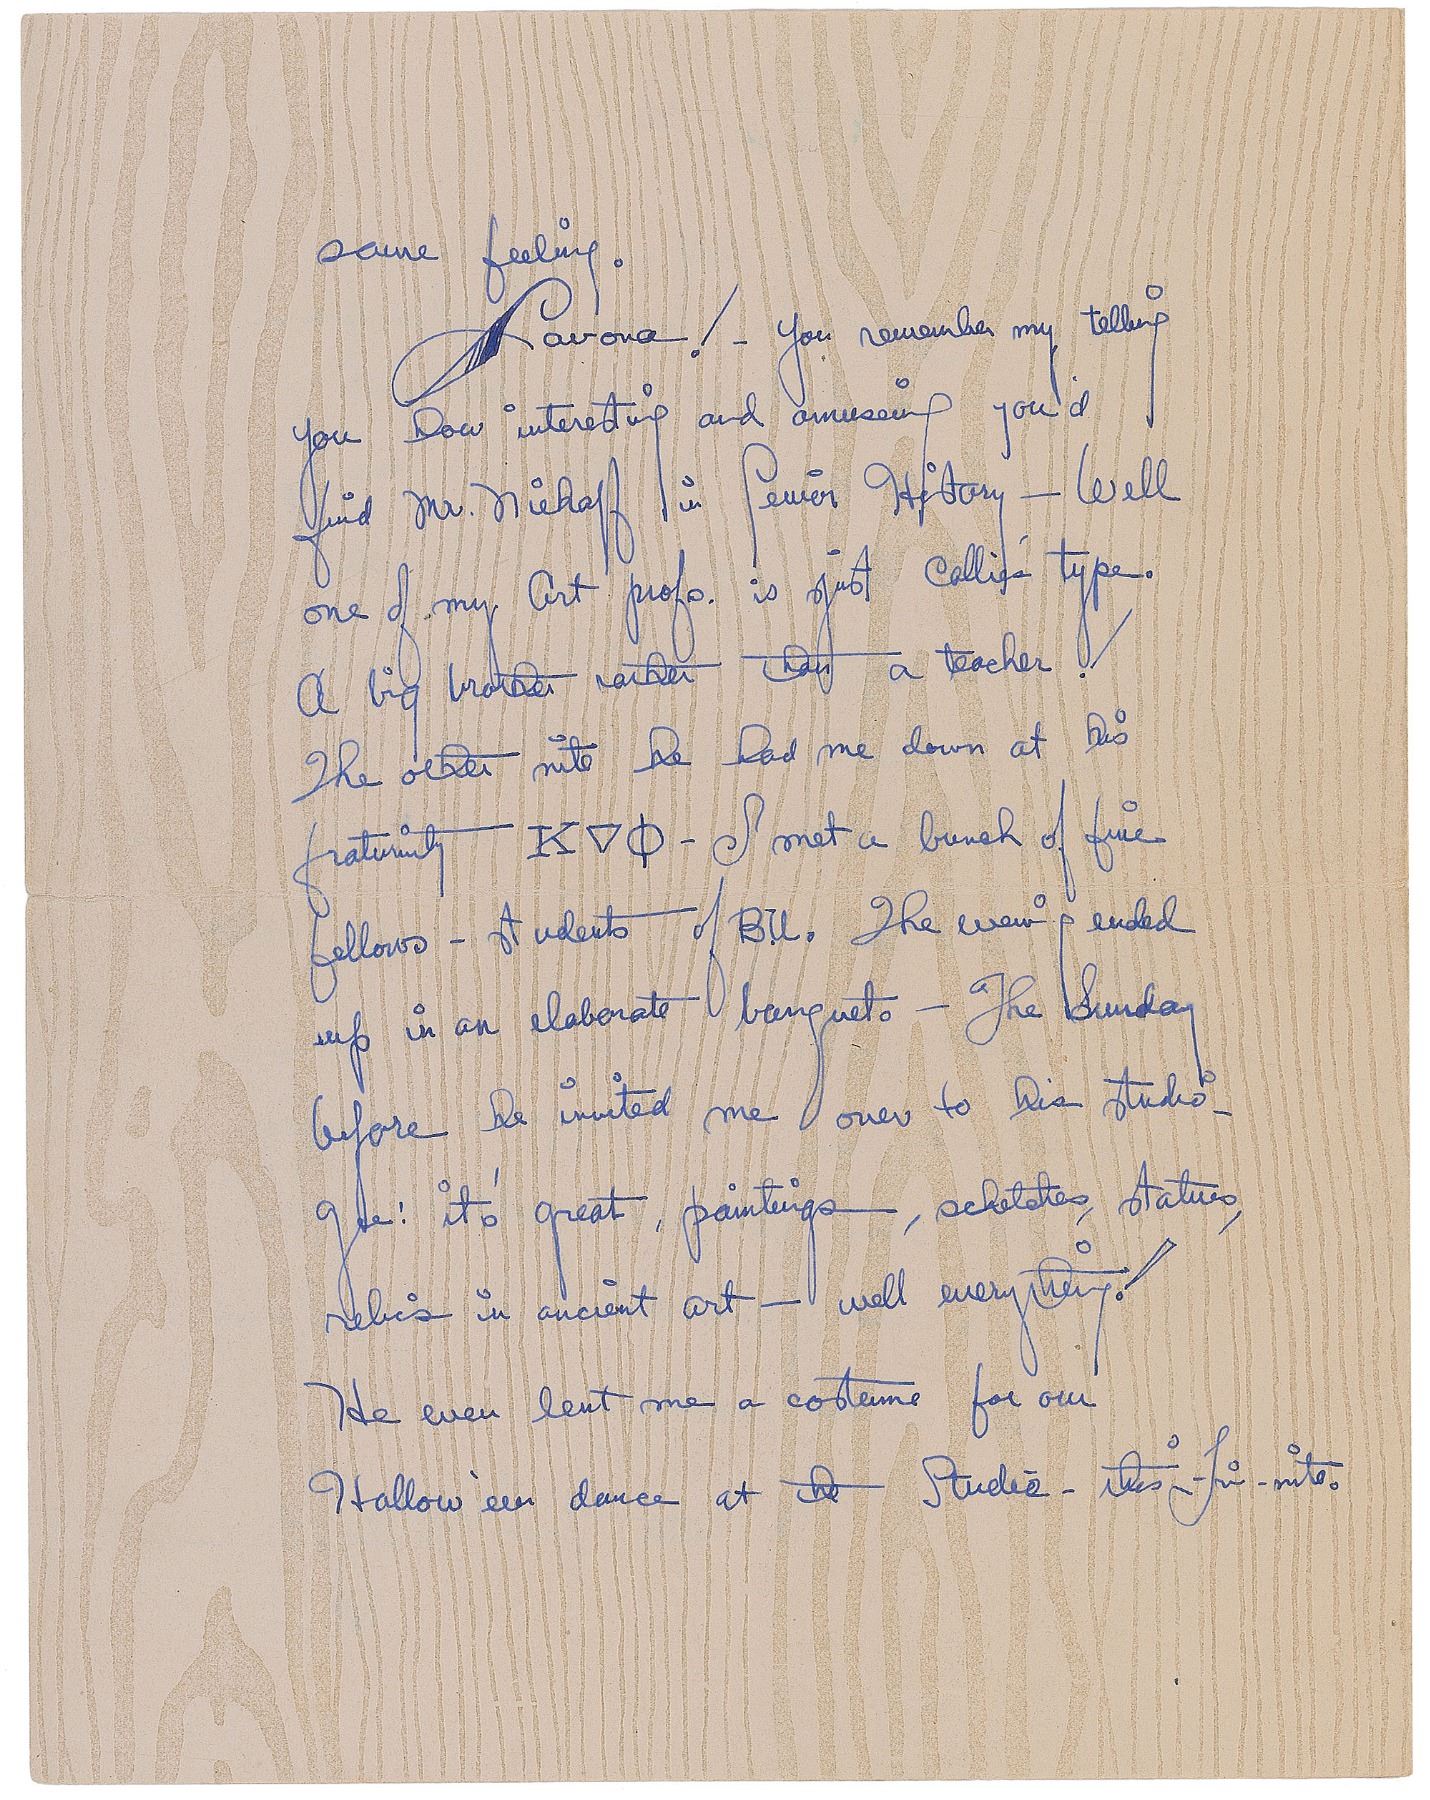 same feeling.
Lavona! - You remember my telling
you how interesting and amuseing you'd
find Mr. Niehoff in Senior History — Well
one of my Art profs. is just Callie's type.
A big brother rather than a teacher!
The other nite he had me down at his
fraturnity K∇Φ - I met a bunch of fine
fellows - students of B.U. The evening ended
up in an elaborate banquet. — The Sunday
before he invited me over to his studio -
Gee! it's great, paintings, schetches, statues,
relics in ancient art — well everything!
He even lent me a costume for our
Hallow'een dance at the Studio - this - Fri - nite.